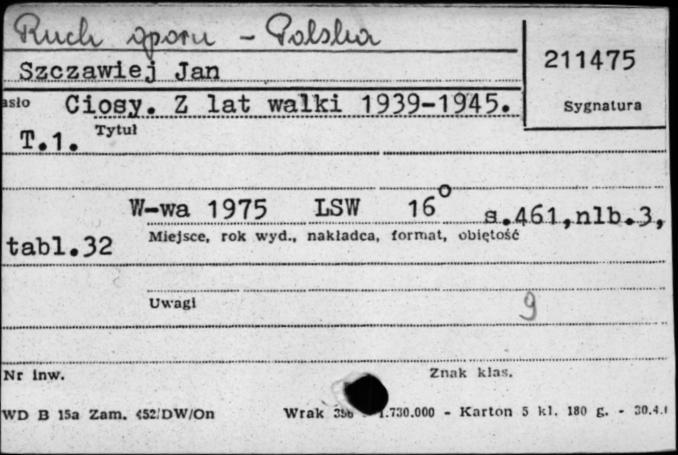 Ruch oporu - Polska
Szczawiej Jan
211475
asło Ciosy. Z lat walki 1939-1945.
Sygnatura
T.1. Tytuł
W-wa 1975 LSW 16° s.461,nlb.3,
tabl.32 Miejsce, rok wyd., nakładca, format, objętość
Uwagi 9
Nr inw. Znak klas.
WD B 15a Zam. 452/DW/On Wrak 1.730.000 - Karton 5 kl. 180 g. - 30.4.